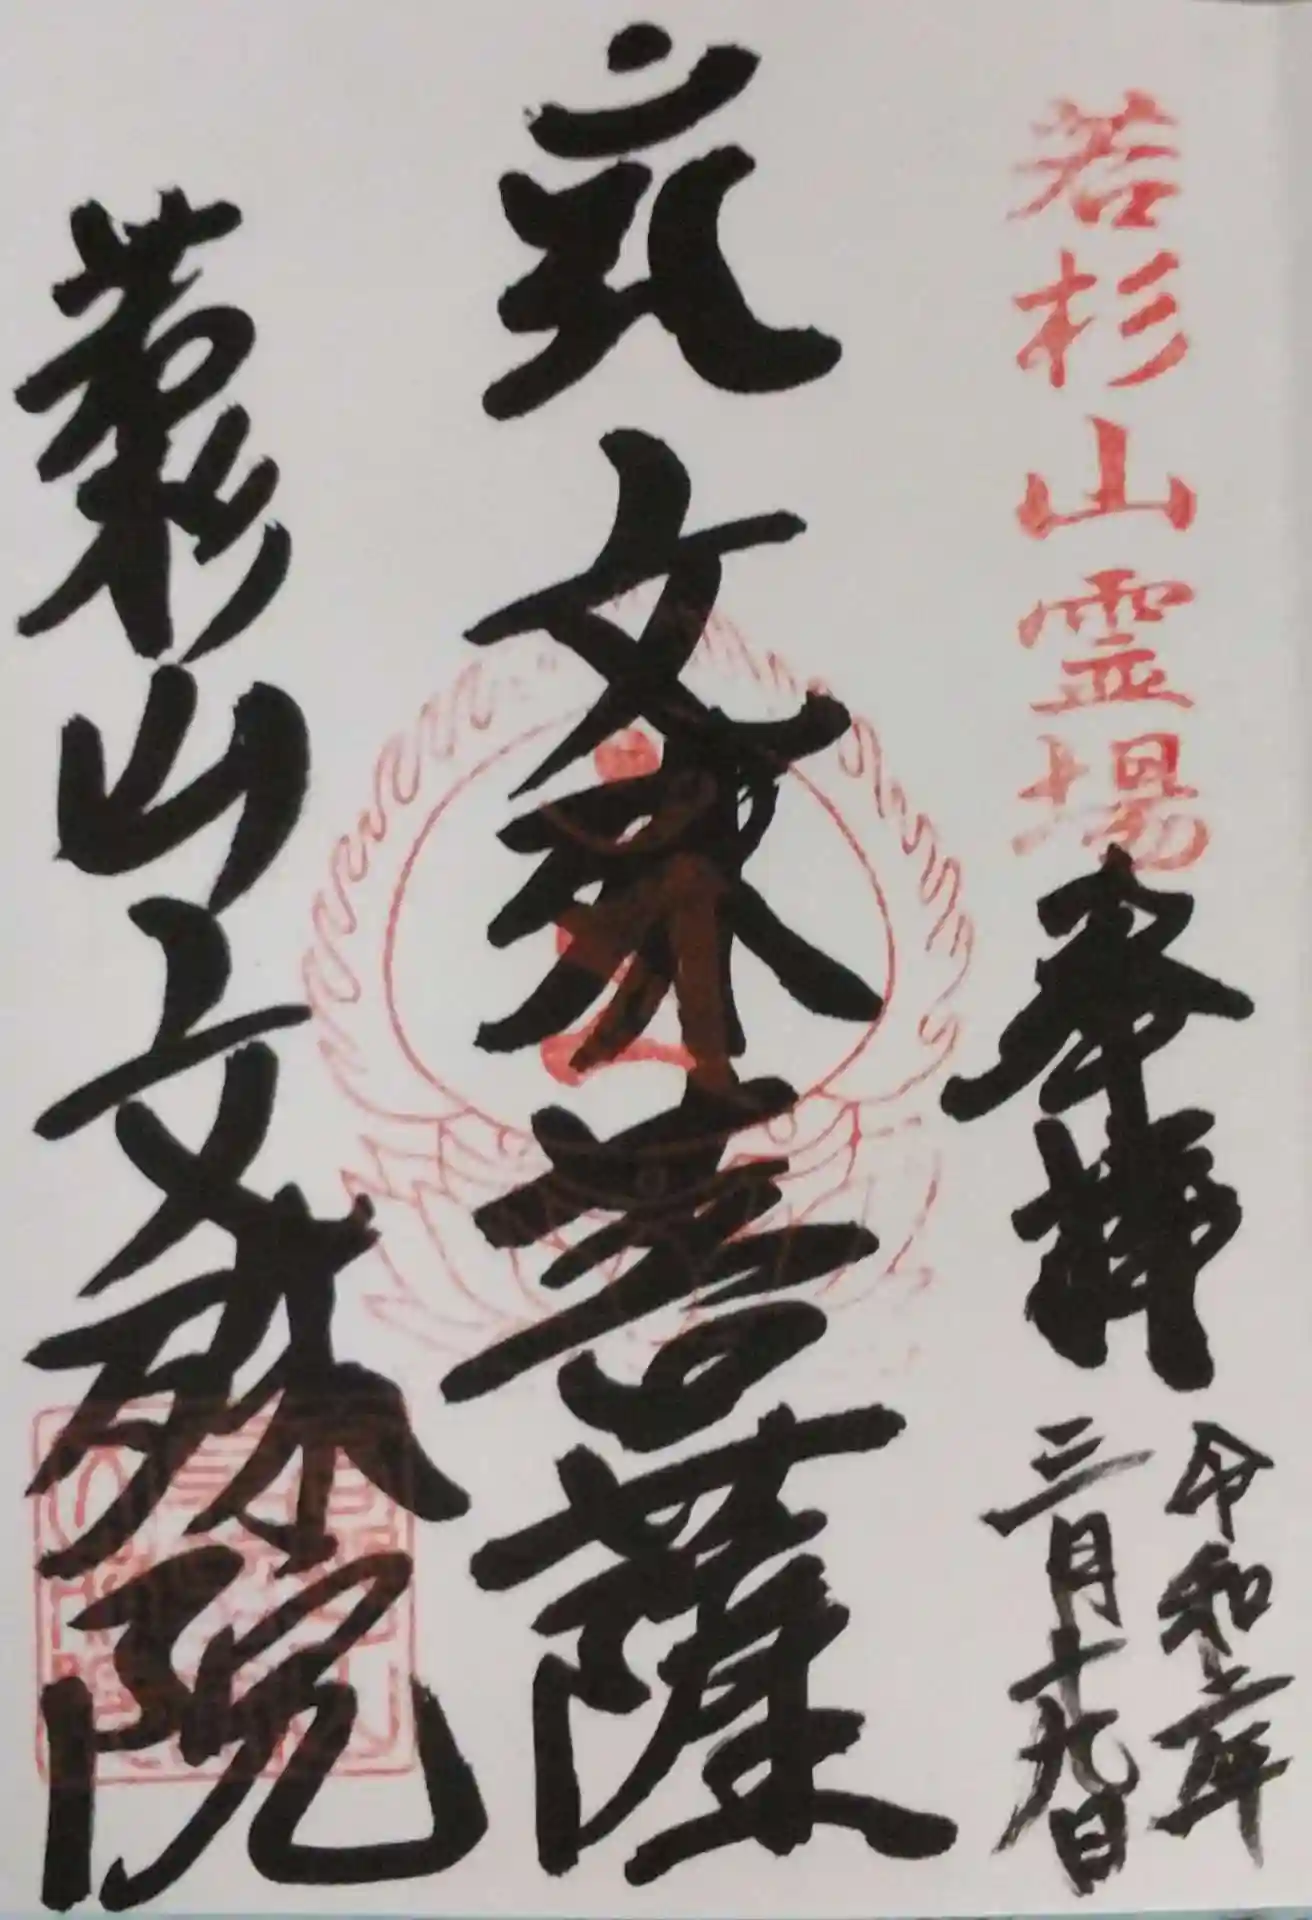 若杉山霊場
奉拝
令和二年
三月十九日
文殊菩薩
若杉山
文殊院